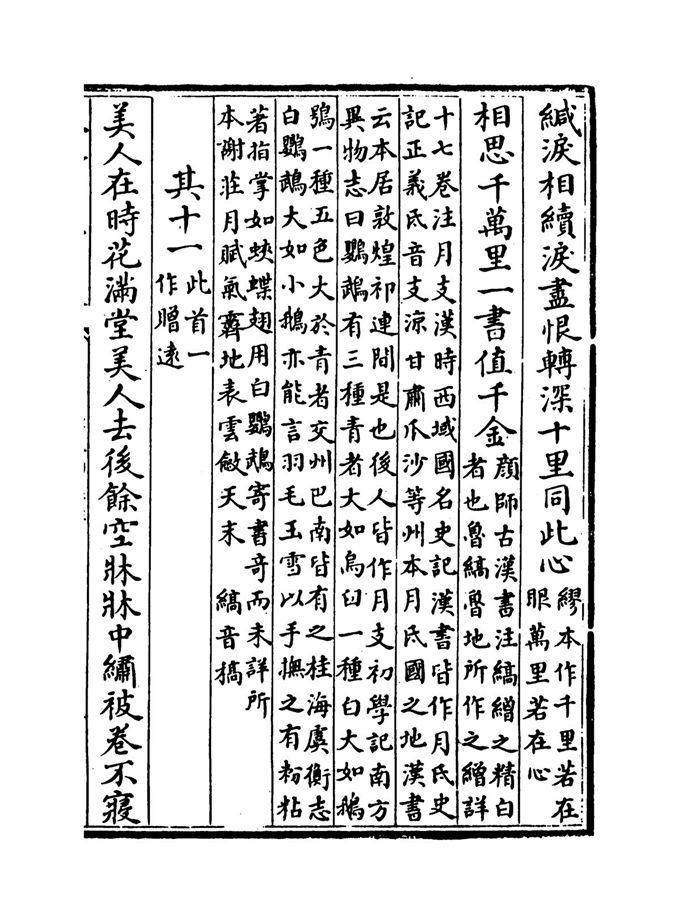 緘淚相續淚盡恨轉深十里同此心繆本作千里若在
眼萬里若在心
相思千萬里一書值千金顔師古漢書注縞繒之精白
者也魯縞魯地所作之繒詳
十七卷注月支漢時西域國名史記漢書皆作月氏史
記正義氏音支涼甘肅爪沙等州本月氏國之地漢書
云本居敦煌祁連間是也後人皆作月支初學記南方
異物志曰鸚鵡有三種青者大如烏臼一種白大如鵝
鴞一種五色大於青者交州巴南皆有之桂海虞衡志
白鸚鵡大如小鵝亦能言羽毛玉雪以手撫之有粉粘
著指掌如蛺蝶翅用白鸚鵡寄書竒而未詳所
本謝莊月賦氣霽地表雲斂天末　縞音稿
其十一此首一
作贈遠
美人在時花滿堂美人去後餘空牀牀中繡被卷不寢